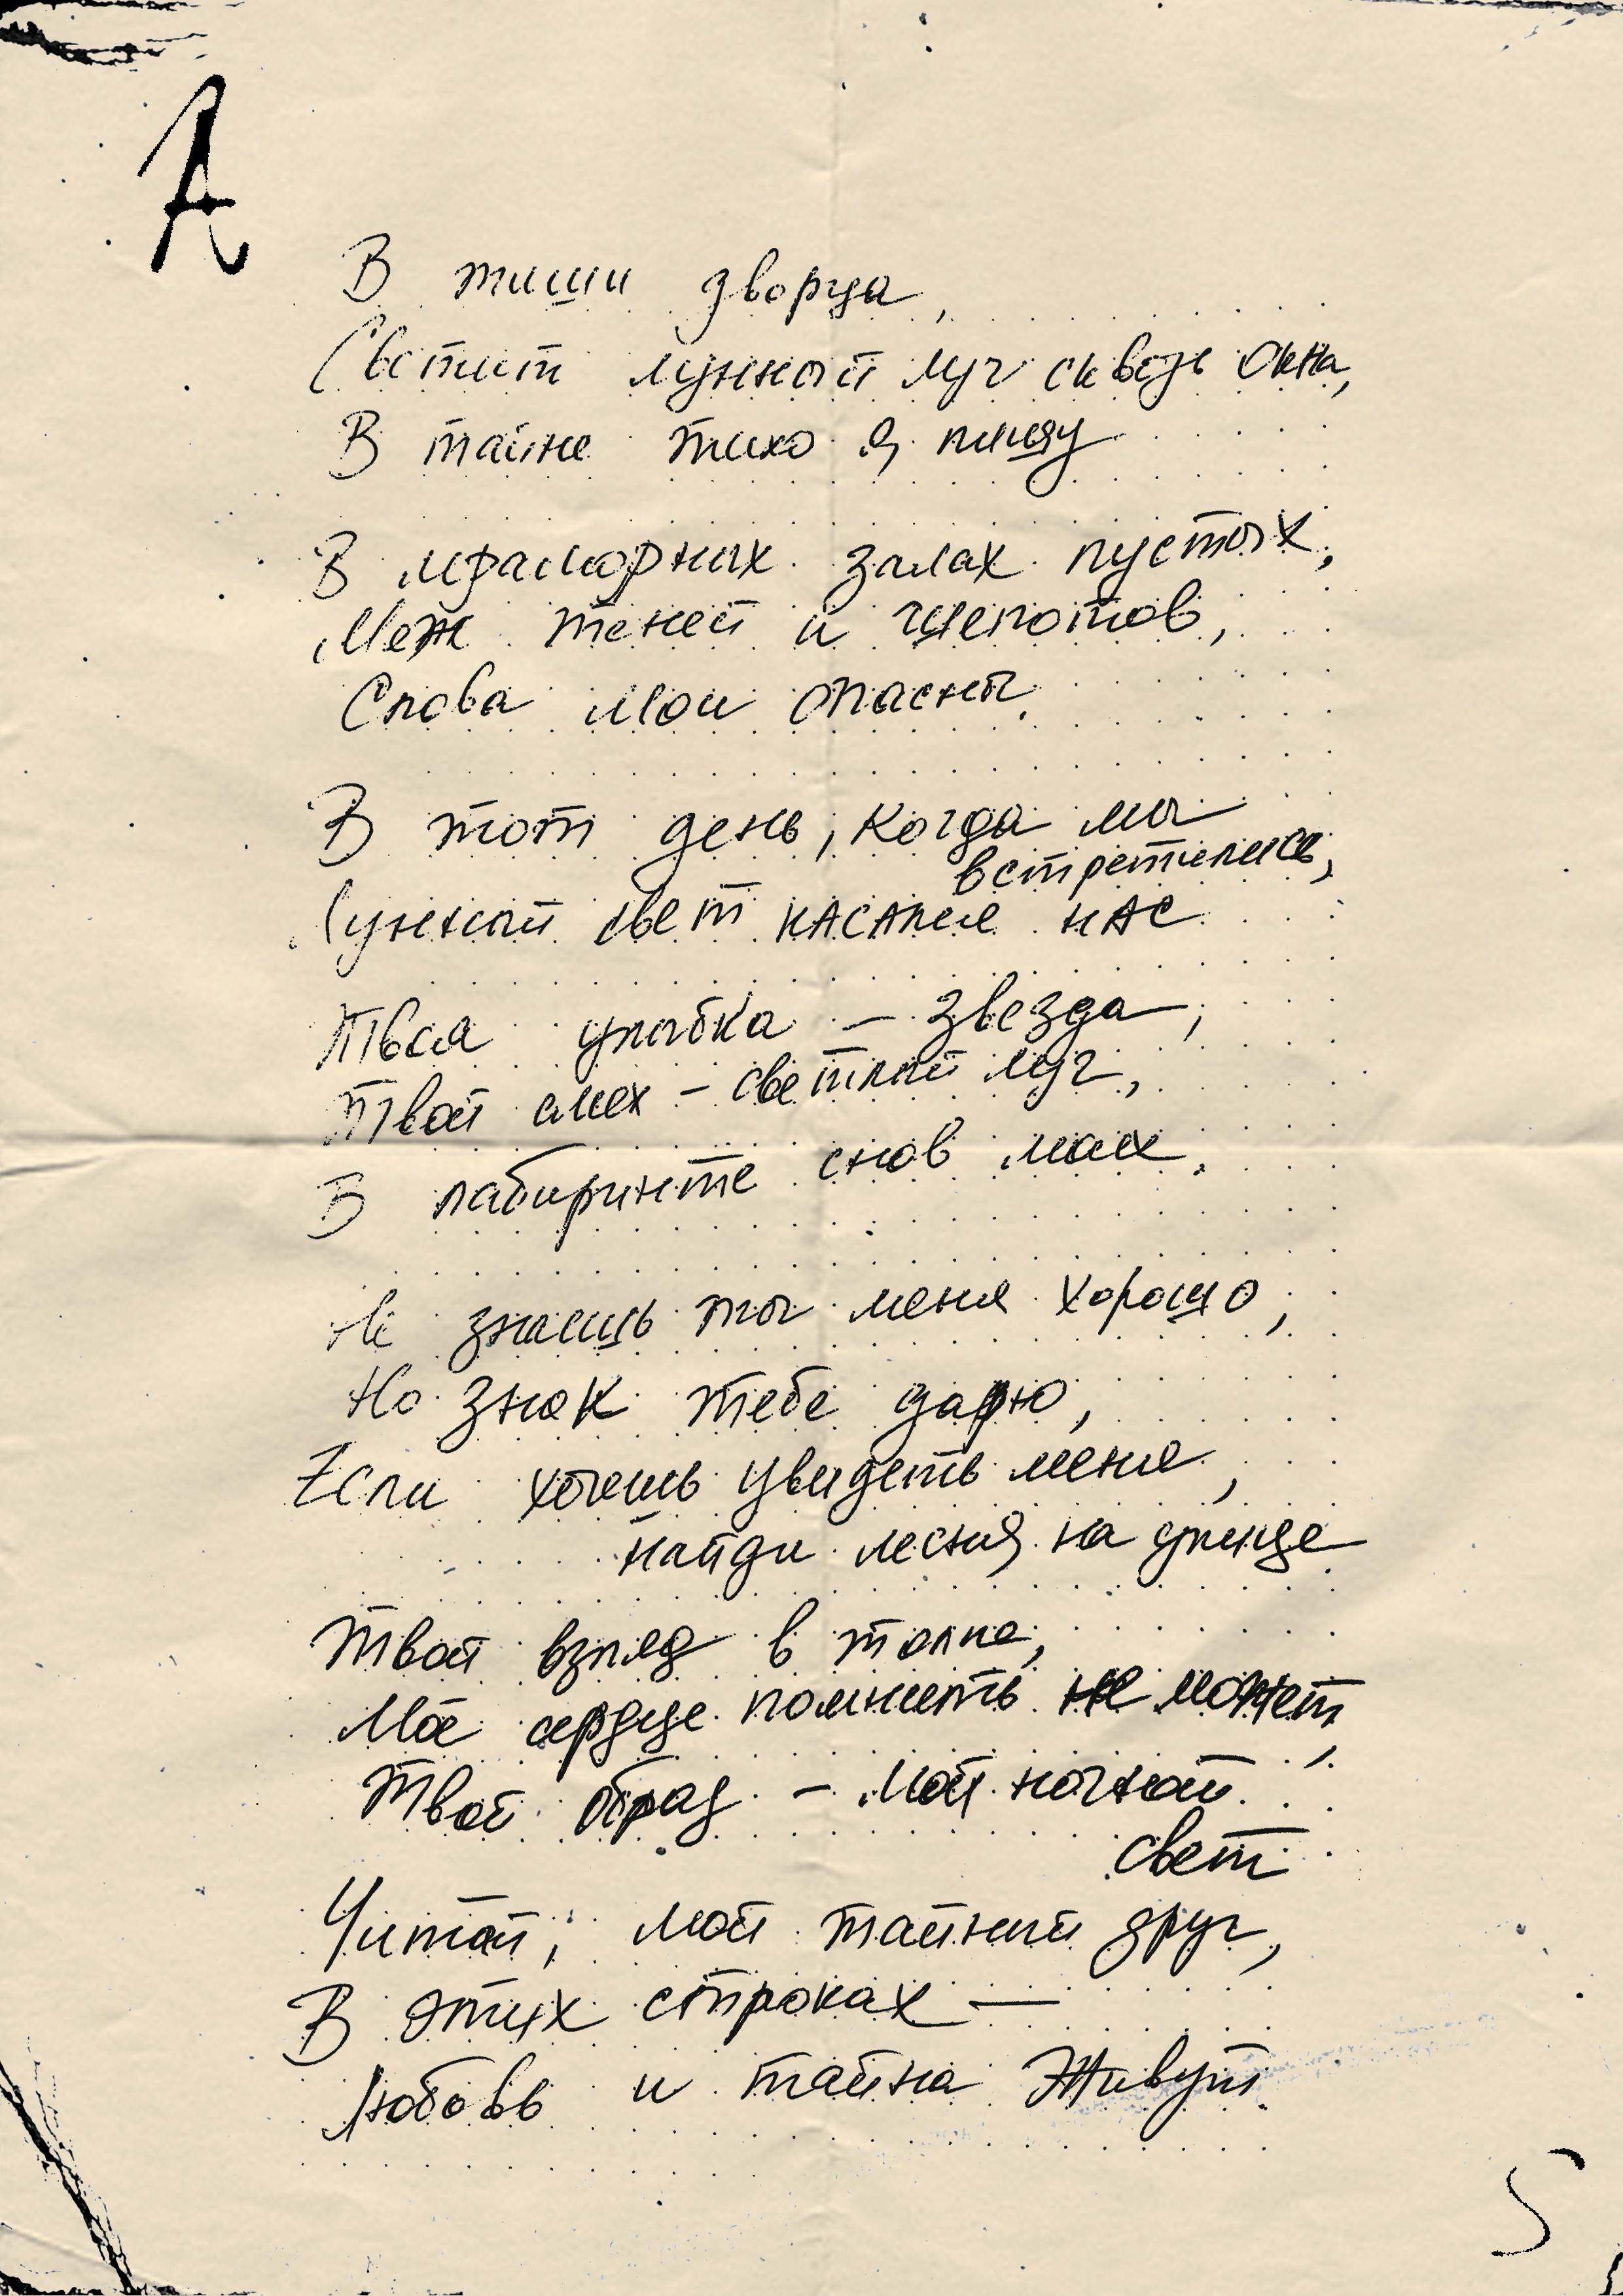 А
В тиши дворца,
Светит лунный луч сквозь окна,
В тайне тихо я пишу
В мраморных залах пустых,
Меж теней и шепотов,
Слова мои опасны.
В тот день, когда мы
встретились,
Лунный свет касался нас
Твоя улыбка – звезда,
Твой смех – светлый луч,
В лабиринте снов моих.
Не знаешь ты меня хорошо,
Но знак тебе дарю,
Если хочешь увидеть меня,
найди меня на улице
Твой взгляд в толпе,
Моё сердце помнить не может,
Твой образ – мой ночной
свет
Читай, мой тайный друг,
В этих строках –
Любовь и тайна живут.
S